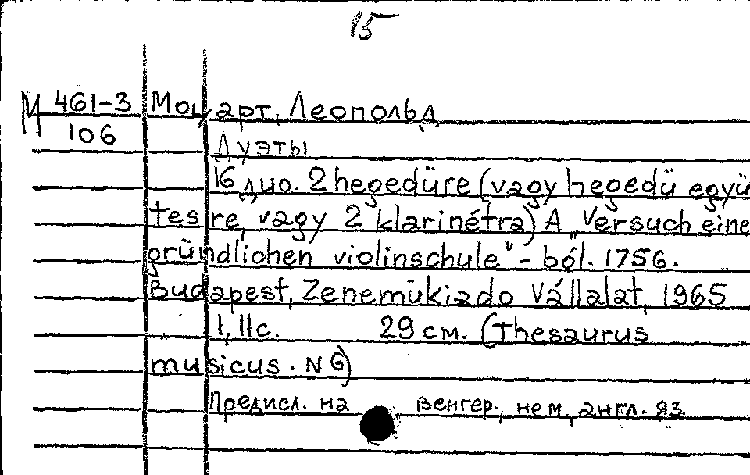 15
М 461-3 Моцарт, Леопольд
106
Дуэты
16 дио. 2 hegedüre (vagy hegedü együ
tesre, vagy 2 klarinétra) A „Versuch eine
gründlichen violinschule" - ból. 1756.
Budapest, Zenemükiado Vállalat, 1965
I, II c. 29 см. (Thesaurus
musicus. N 6)
Предисл. на венгер., нем., англ. яз.